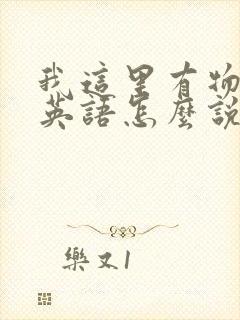 我這里有物
英語怎麼說
樂文1